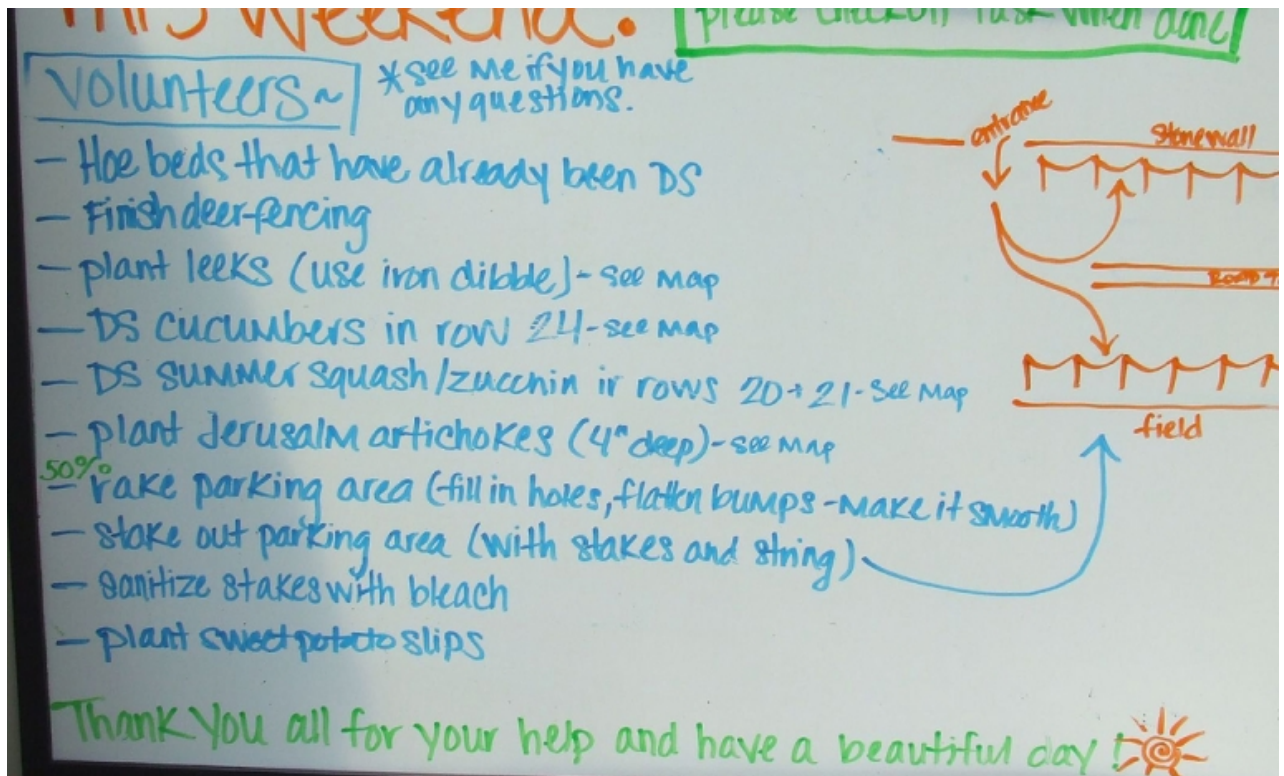 This Weekend.
please checkoff Task when done
Volunteers~
*see me if you have
any questions.
- Hoe beds that have already been DS
- Finish deer-fencing
- plant leeks (use iron dibble)- see map
- DS cucumbers in row 24-see map
- DS summer squash/zucchin in rows 20+21-see map
- plant Jerusalm artichokes (4" deep)-see map
50%
- rake parking area (fill in holes, flatten bumps-make it smooth)
- stake out parking area (with stakes and string)
- sanitize stakes with bleach
- plant sweet potato slips
Thank you all for your help and have a beautiful day!
entrance
stonewall
field